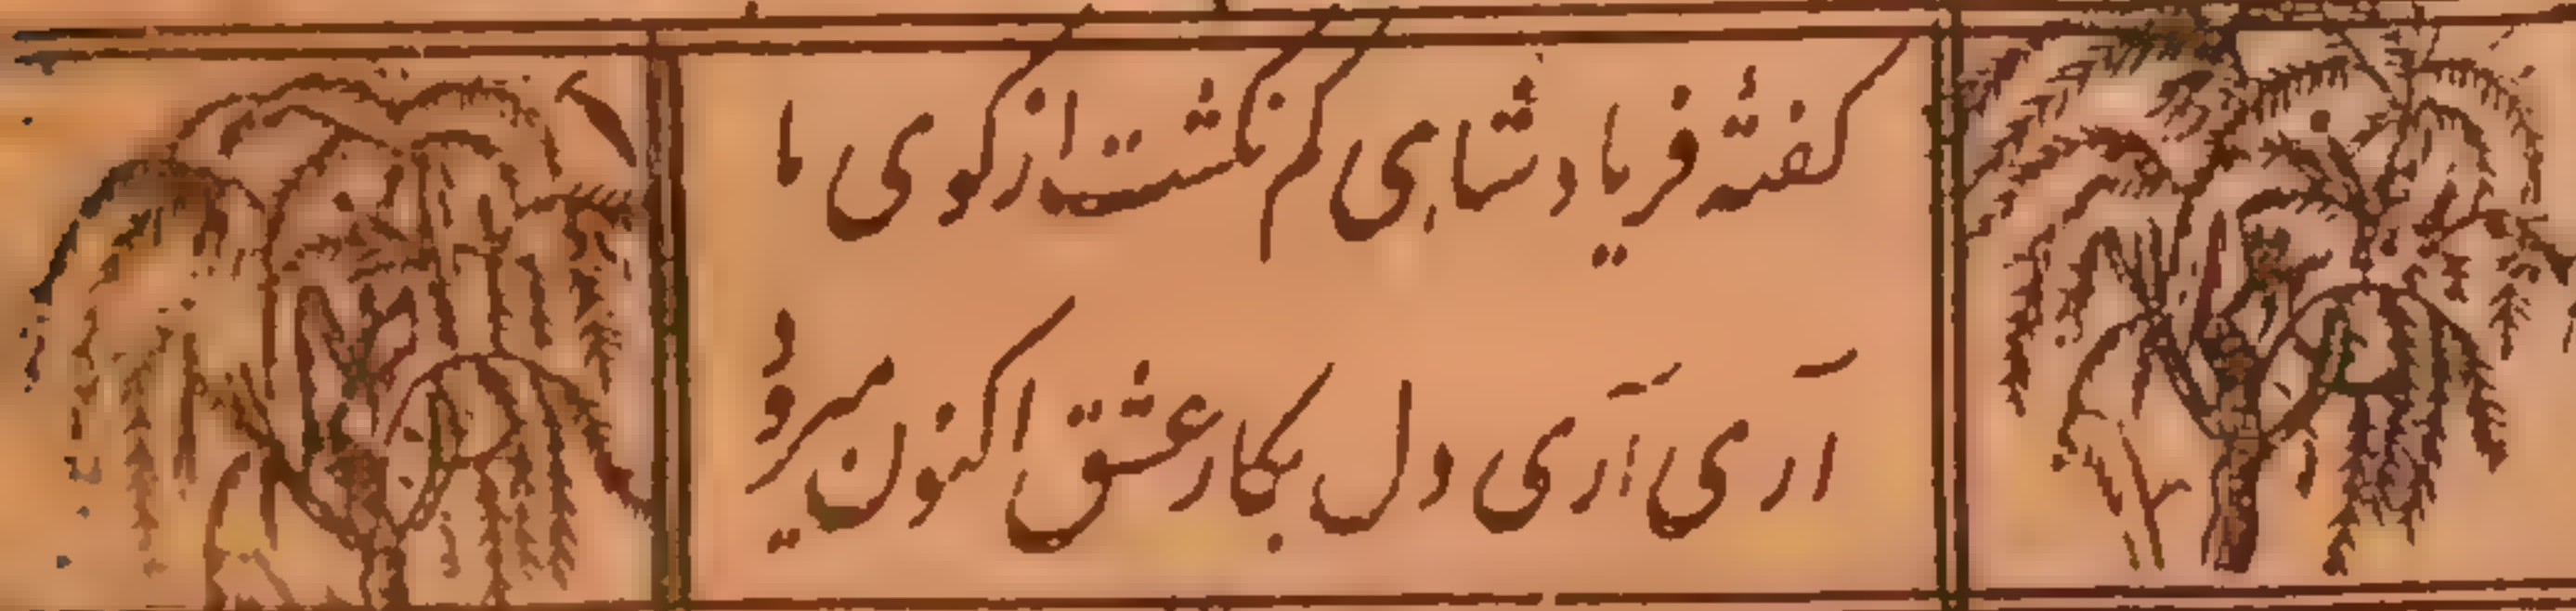 کفتهٔ فریاد شاہی کم نکشت از کوی ما
آری آری دل بکار عشق اکنون میرود